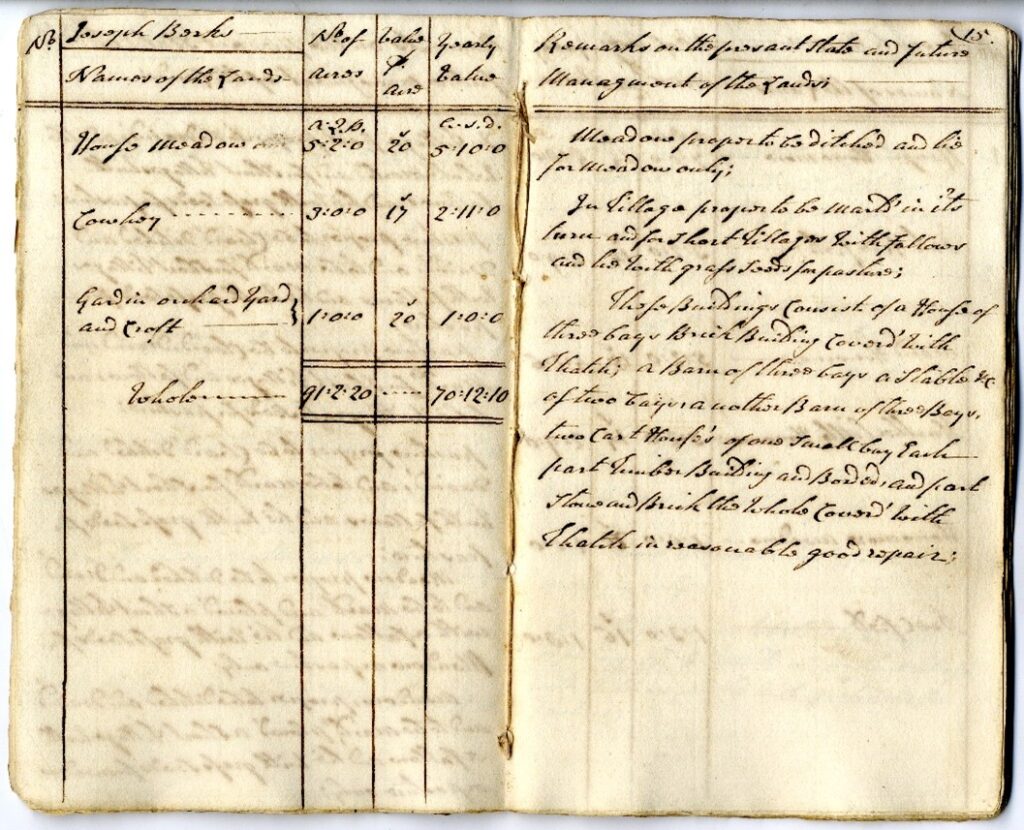 No Joseph Berks No of Value Yearly
Names of the Lands acres pr acre Value
a. r. p. £. s. d.
House Meadow 5:2:0 20s 5:10:0
Cowhey 3:0:0 17s 2:11:0
Gardin orchard Yard
and Croft 1:0:0 20s 1:0:0
Whole 91:2:20 70:12:10
15.
Remarks on the presant State and future
Managment of the Lands;
Meadow proper to be ditched and lie
for Meadow only;
In Tillage proper to be Marld in its
turn and for Short Tillages With fallows
and lie With grass Seeds for pasture;
These Buildings Consist of a House of
three bays Brick Building Coverd With
Thatch; a Barn of three bays a Stable &c
of two bays another Barn of three Bays,
two Cart House's of one Small bay Each
part Timber Building and Borded, and part
Stone and Brick the Whole Coverd With
Thatch in reasonable good repair;